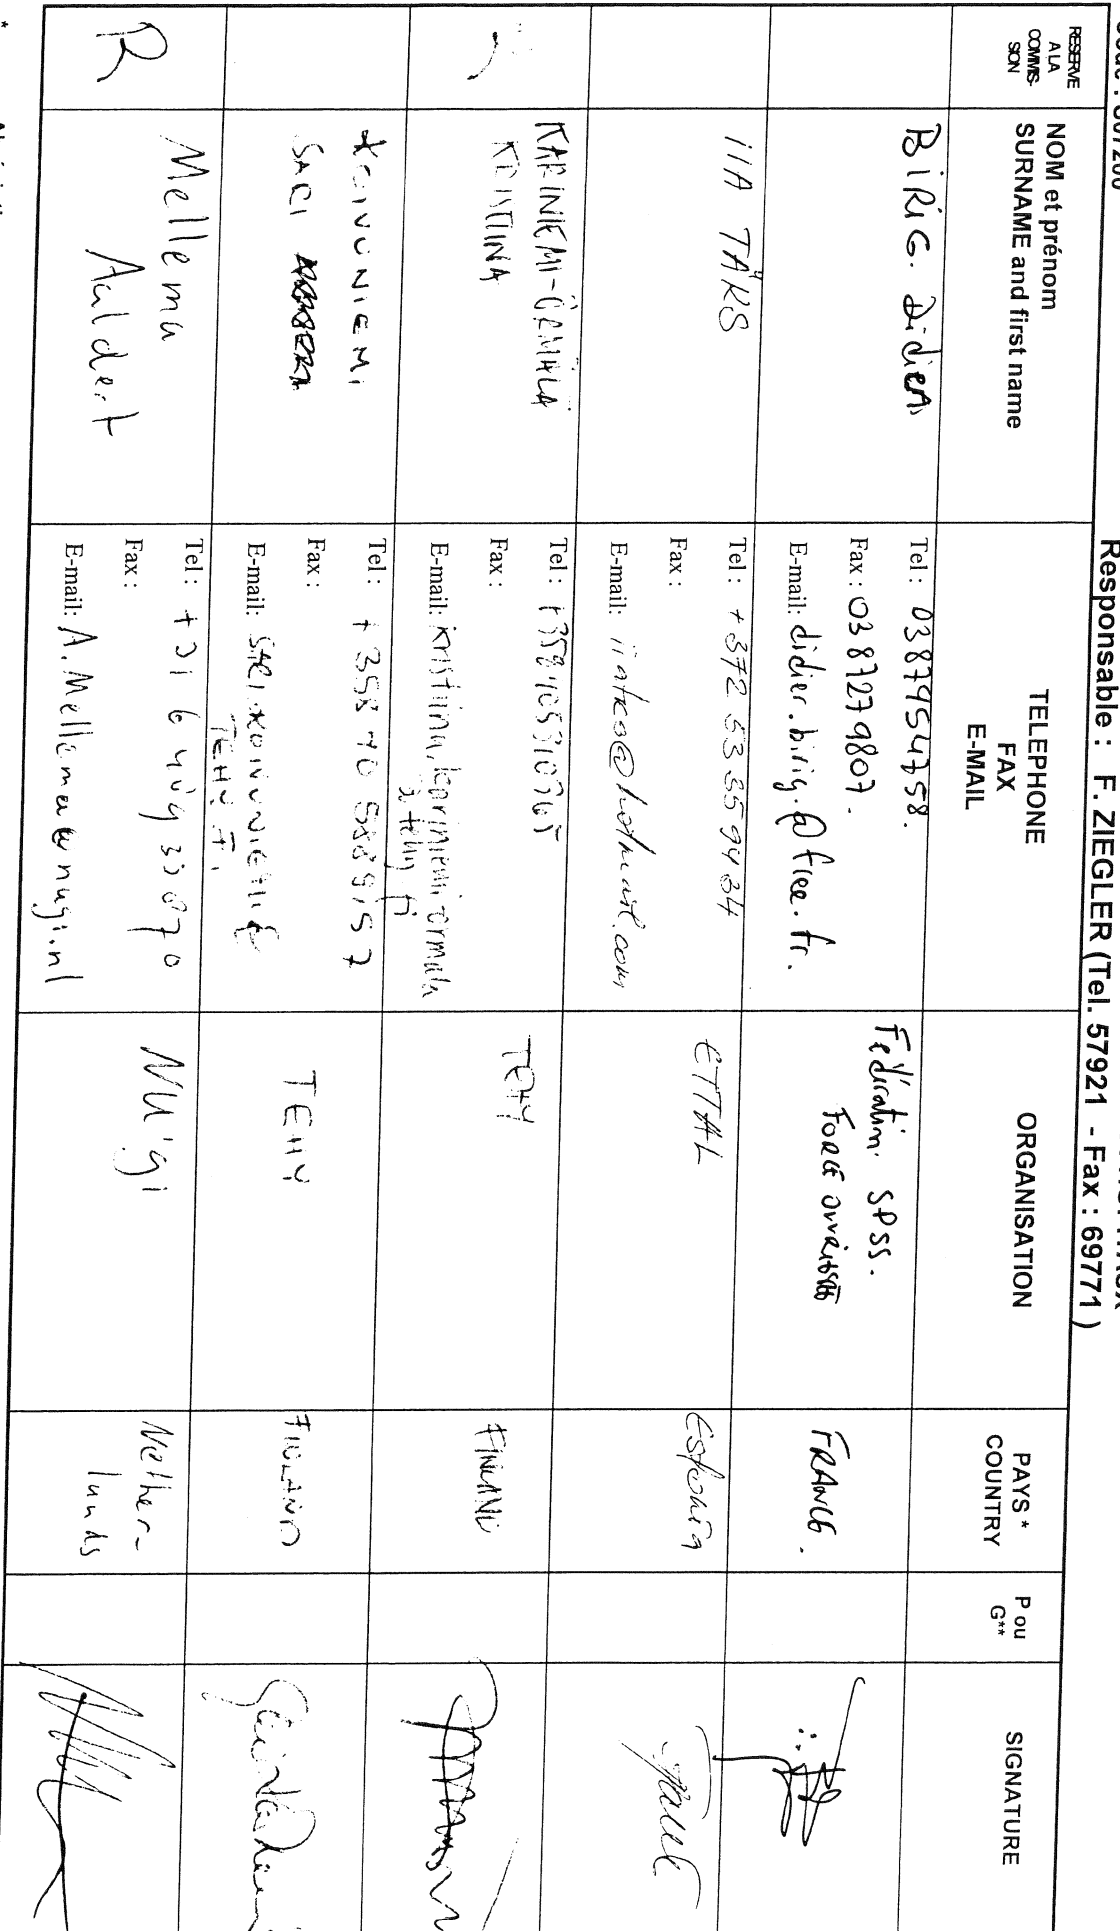 Responsable : F. ZIEGLER (Tel. 57921 - Fax : 69771 )
RESERVE
A LA
COMMIS-
SION
NOM et prénom
SURNAME and first name
TELEPHONE
FAX
E-MAIL
ORGANISATION
PAYS *
COUNTRY
P ou
G**
SIGNATURE
BIRIG. Didier
Tel : 0387954758.
Fax : 0387279807.
E-mail: didier.birig.@free.fr.
Fédération SPSS.
FORCE OUVRIERE
FRANCE.
IIA TÄKS
Tel : +372 53 359434
Fax :
E-mail: iiataks@hotmail.com
ETTAL
Estonia
KARINIEMI-ÖRMÄLÄ
KRISTIINA
Tel :
Fax :
E-mail: kristiina.kariniemi-ormala
@ tehy fi
TEHY
FINLAND
KOIVUNIEMI
SARI
Tel : +358 40 5889157
Fax :
E-mail: SARI.KOIVUNIEMI@
TEHY.FI
TEHY
FINLAND
R
Mellema
Aaldert
Tel : +31 6
Fax :
E-mail: A.Mellema@nugi.nl
NU'gi
Nether-
lands